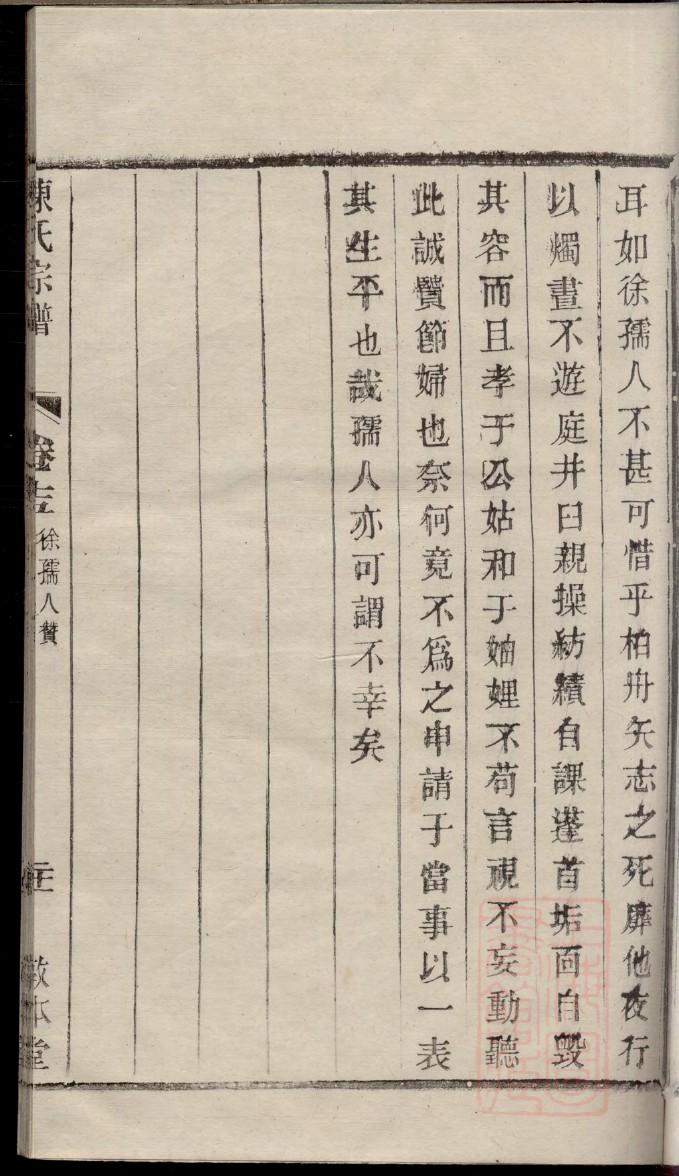 耳如徐孺人不甚可惜乎柏舟矢志之死靡他夜行
以燭晝不遊庭井臼親操紡績自課蓬首垢面自毀
其容而且孝于公姑和于妯娌不苟言視不妄動聽
此誠賢節婦也奈何竟不為之申請于當事以一表
其生平也哉孺人亦可謂不幸矣
陳氏宗譜
徐孺人贊
敦本堂